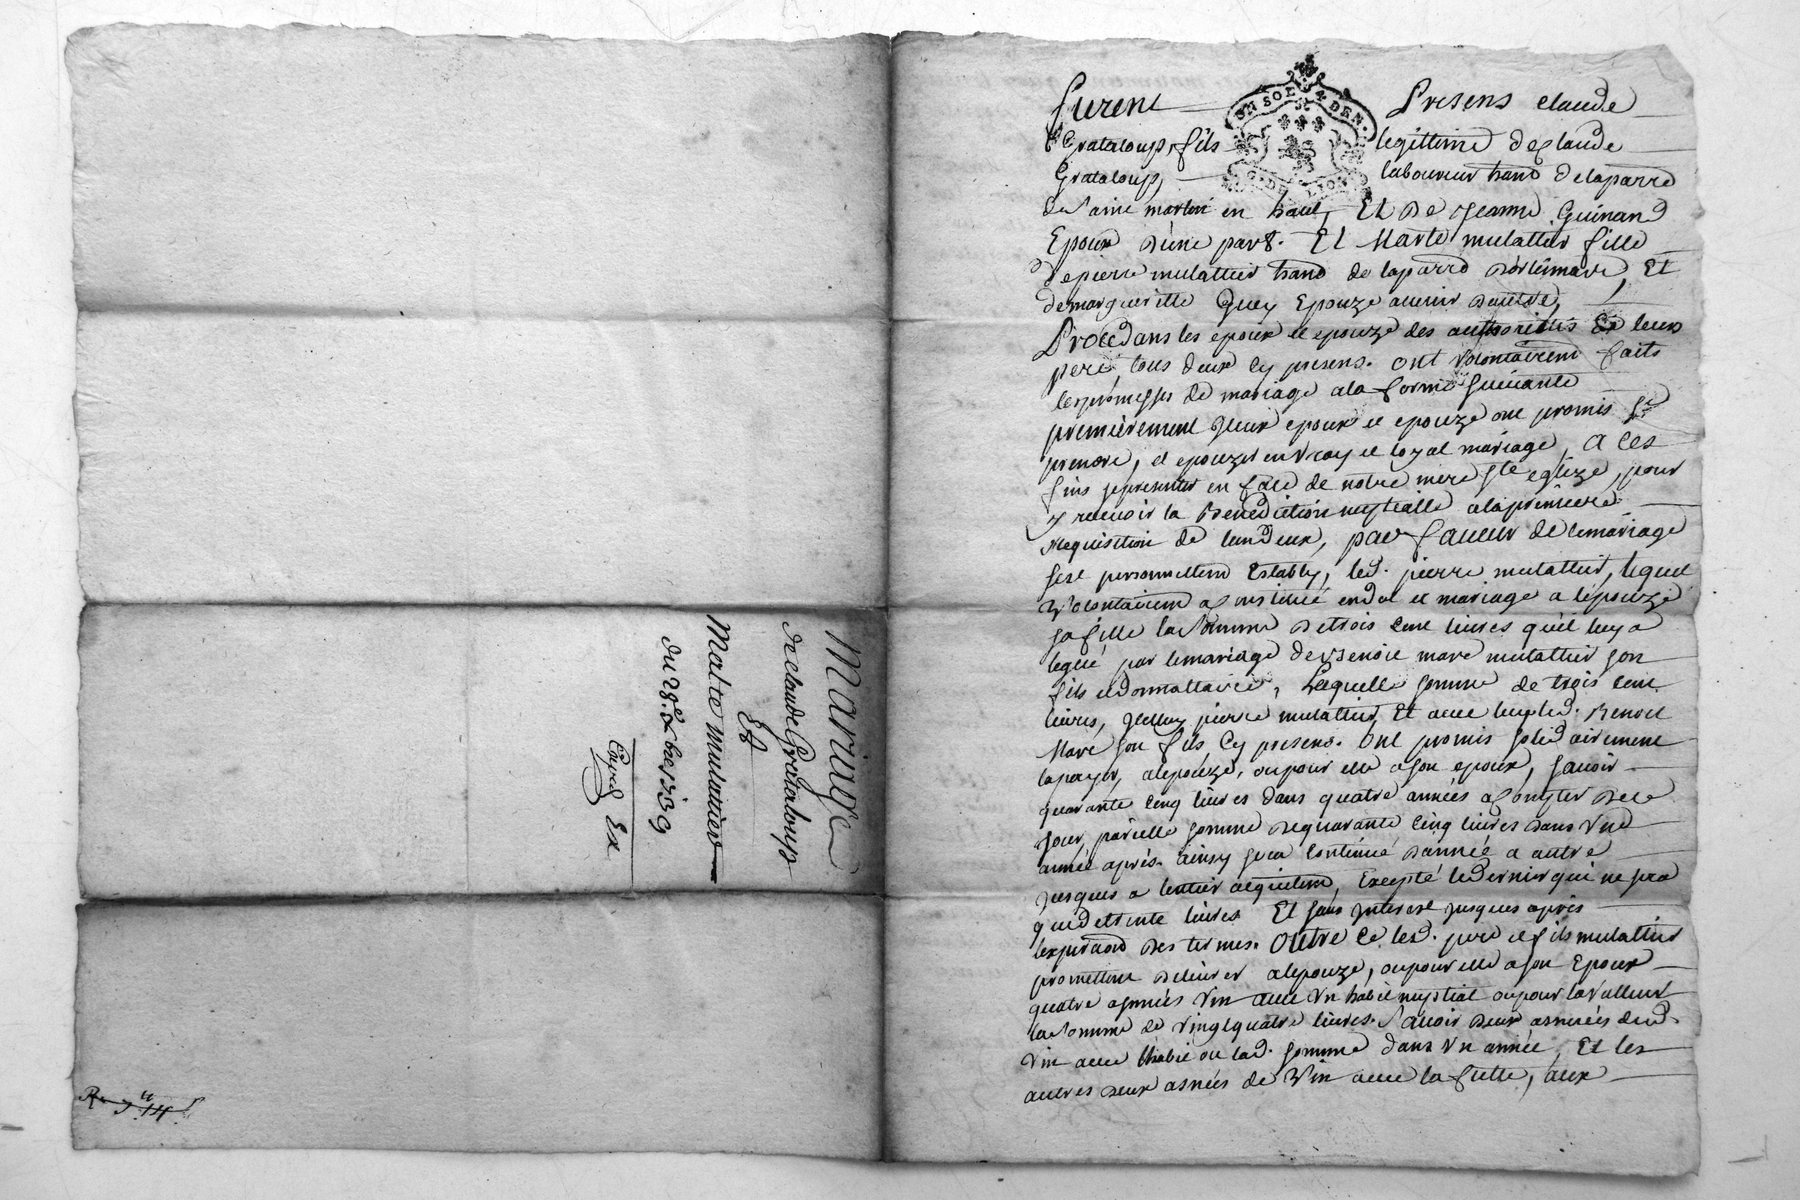 Mariage
de claude Grataloup
Et
Marte mulattier
du 28e xbre 1739
Expéd Ex
UN SOL 4 DEN.
G. DE LION
furent Presens claude
Grataloup, fils legittime de claude
Grataloup, laboureur hant de laparre
de Saint martin en haut, Et De Jeanne Guinand
Epoux d'une part. Et Marte mulattier fille
de pierre mulattier hant de laparre
de margueritte Guey Epouze avenir d'autre,
Proceddans les epoux et epouze des authorités de leurs
pere, tous deux cy presens. ont volontairemt faits
les promesses de mariage a la forme suivante
premierement yceux epoux et epouze ont promis se
prendre, et epouzer en vray et loyal mariage, A ces
fins se presenter en face de notre mere ste eglize, pour
y recevoir la Benediction nuptialle a la premiere
Requisition de l'un d'eux, par faveur de ce mariage
sest personnellemt Estably, led. pierre mulattier, lequel
volontairemt a constitué en dot et mariage a l'epouze
sa fille la Somme De trois cent livres qu'il luy a
legué par le mariage de Benoit mare mulattier son
fils et donnattaire, Laquelle somme de trois cent
livres, yceluy pierre mulattier, Et avec luy led. Benoit
Mare son fils Cy present. Ont promis solidairement
la payer, a lepouze, ou pour elle a son epoux, scavoir
quarante cinq livres dans quatre années a compter De ce
jour, pareille somme De quarante cinq livres Dans Une
année après. ainsy sera continué D'année a autre
jusques a l'entier acquittemt, Excepté le dernier qui ne sera
que de trente livres Et sans Interest jusques après
lexpiraon Des termes. Outre Ce lesd. pere et fils mulattier
promettent Delivrer a lepouze, ou pour elle a son Epoux
quatre asnnées vin avec Un habit nuptial ou pour la valleur
la Somme de vingt quatre livres. Savoir Deux asnnées dud.
vin avec lhabit ou lad. somme dans Un année, Et les
autres Deux asnées de Vin avec la futte, aux